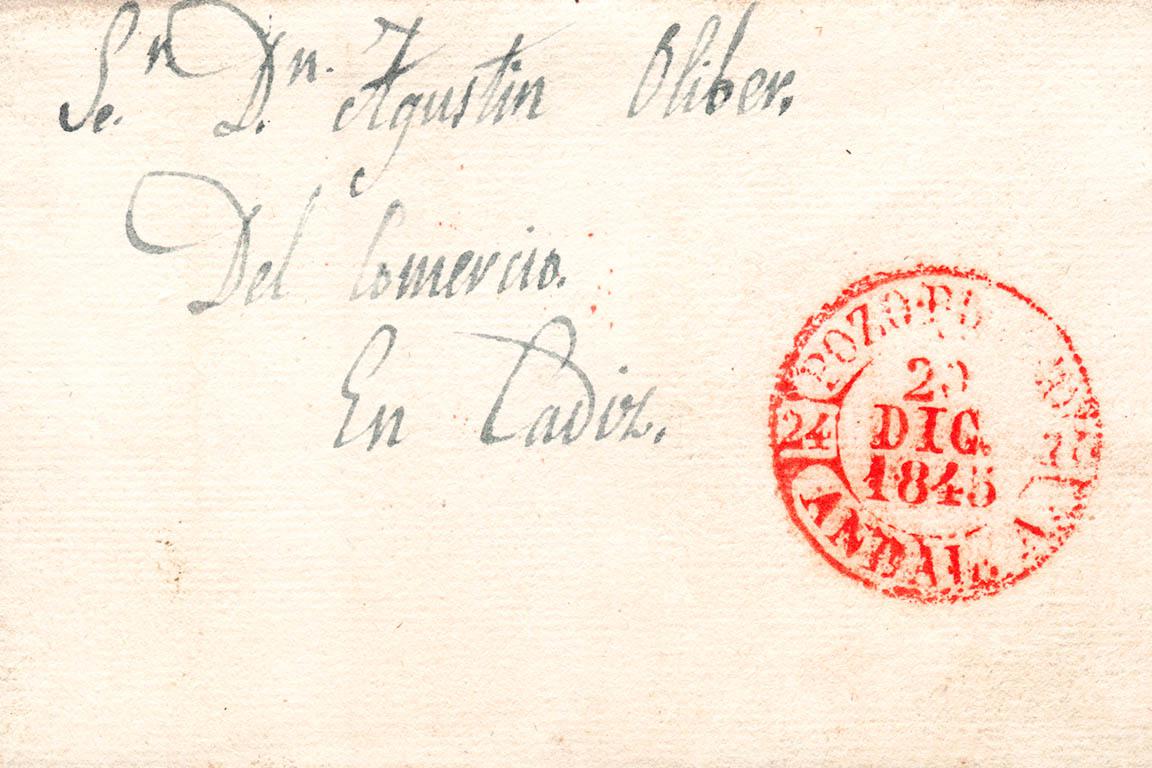 Sr. Dn. Agustin Oliber.
Del Comercio.
En Cadiz.
POZO
24
DIC.
1845
ANDAL. A